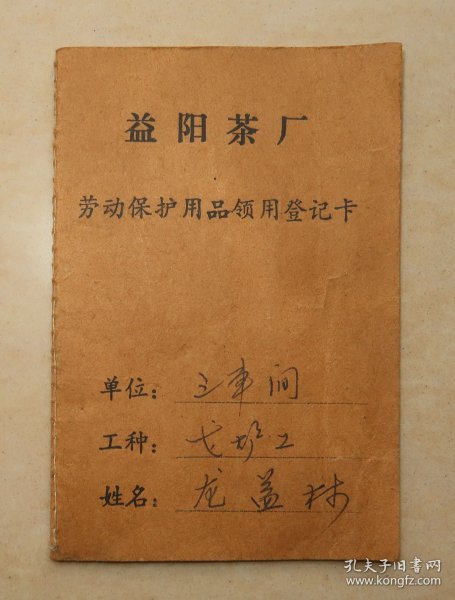 益阳茶厂
劳动保护用品领用登记卡
单位：三车间
工种：工
姓名：龙益林
孔夫子旧书网
www.kongfz.com